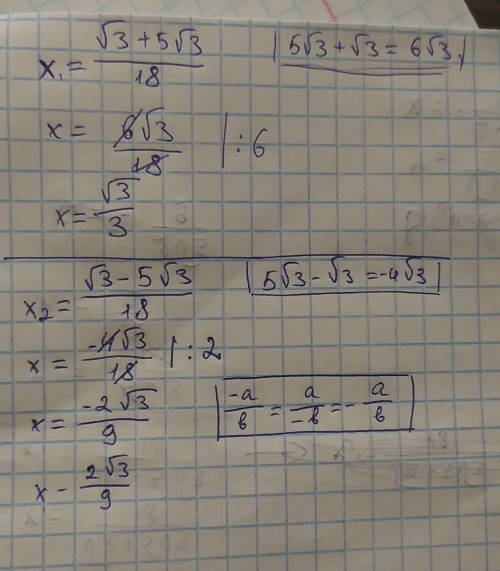 x₁ = (√3 + 5√3)/18 | 5√3 + √3 = 6√3. |
x = 6√3/18 | : 6
x = √3/3
x₂ = (√3 − 5√3)/18 | 5√3 − √3 = −4√3 |
x = −4√3/18 | : 2
x = −2√3/9 | −a/b = a/−b = −a/b |
x − 2√3/9